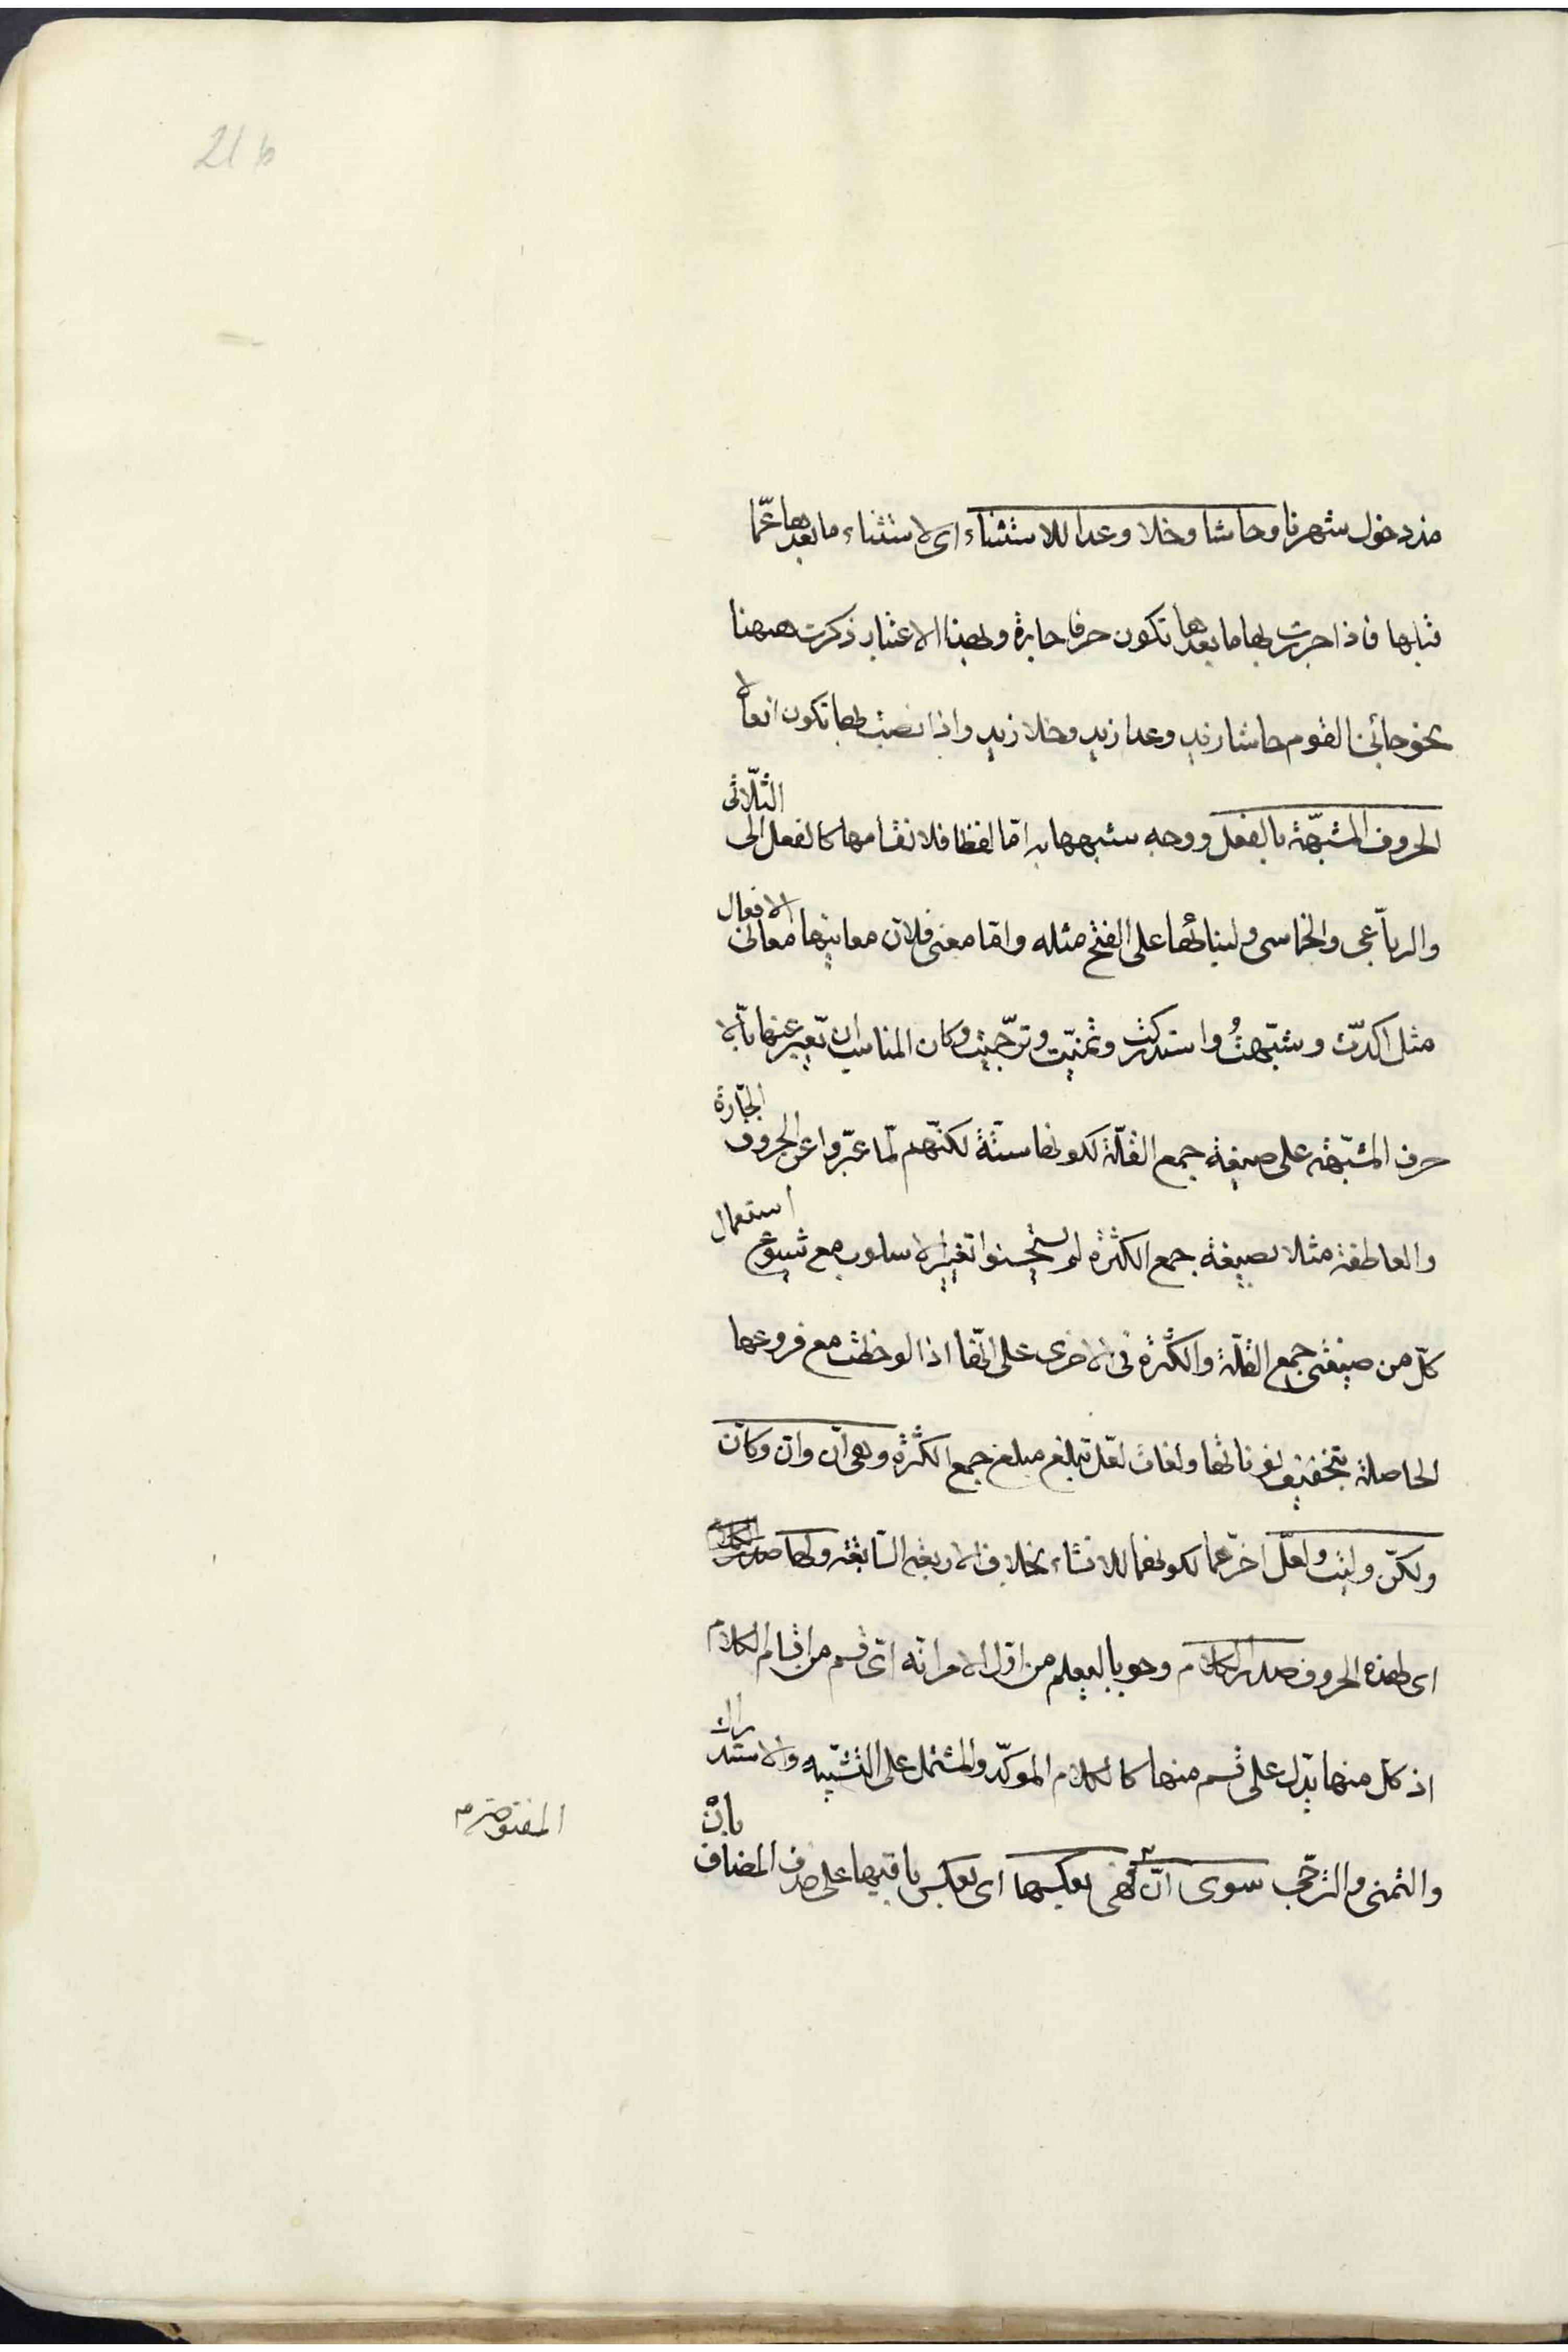 21 b
منذ دخول شهرنا وحاشا وخلا وعدا للاستثناء اى لاستثناء ما بعدها عمّا
قبلها فاذا جررت بها ما بعدها تكون حرفا جارة وبهذا الاعتبار ذكرت ههنا
نحو جائنى القوم حاشا زيد وعدا زيد وخلا زيد واذا نصبت بها تكون افعالا
الحروف المشبّهة بالفعل ووجه شبهها به امّا لفظا فلانقسامها كالفعل الى الثلاثى
والرباعى والخماسى ولبنائها على الفتح مثله وامّا معنى فلان معانيها معانى الافعال
مثل اكدّت وشبّهتُ واستدركت وتمنيّت وترجّيت وكان المناسب ان تعبير عنها بالا
حرف المشبّهة على صيغة جمع القلّة لكونها ستّة لكنّهم لمّا عبّروا عن الحروف الجارّة
والعاطفة مثلا بصيغة جمع الكثرة لم يستحسنوا تغيير الاسلوب مع شيوع استعمال
كلّ من صيغتى جمع القلّة والكثرة فى الاخرى على انّها اذا لوحظت مع فروعها
الحاصلة بتخفيف نوناتها ولغات لعلّ تبلغ مبلغ جمع الكثرة وهى انّ وانّ وكانّ
ولكنّ وليت ولعلّ اخّرهما لكونهما للانشاء بخلاف الاربعة السّابقة ولها صدر الكلام
اى لهذه الحروف صدر الكلام وجوبا ليعلم من اوّل الامر انّه اىّ قسم من اقسام الكلام
اذ كلّ منها يدلّ على قسم منها كالكلام الموكّد والمشتمل على التشبيه والاستدراك
والتمنى والترجّى سوى انّ فهى بعكسها اى بعكس باقيها على حذف المضاف بانْ
المفتوحة م